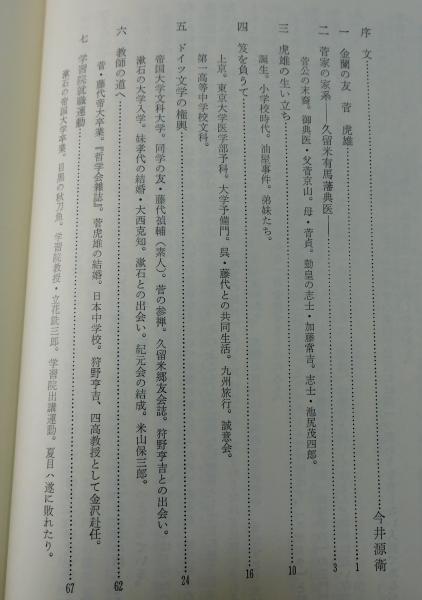 序文……今井源衛
一 金蘭の友 菅 虎雄……1
二 菅家の家系―久留米有馬藩典医―……3
菅公の末裔。御典医・父菅京山。母・菅貞。勤皇の志士・加藤常吉。志士・池尻茂四郎。
三 虎雄の生い立ち……10
誕生。小学校時代。油屋事件。弟妹たち。
四 笈を負うて……16
上京。東京大学医学部予科。大学予備門。呉・藤代との共同生活。九州旅行。誠意会。
第一高等中学校文科。
五 ドイツ文学の権輿……24
帝国大学文科大学。同学の友・藤代禎輔(素人)。菅の参禅。久留米郷友会誌。狩野亨吉との出会い。
漱石の大学入学。妹孝代の結婚・大西克知。漱石との出会い。紀元会の結成。米山保三郎。
六 教師の道へ……62
菅・藤代帝大卒業。『哲学会雑誌』。菅虎雄の結婚。日本中学校。狩野亨吉、四高教授として金沢赴任。
七 学習院就職運動……67
漱石の帝国大学卒業。目黒の秋刀魚。学習院教授・立花銑三郎。学習院出講運動。夏目ハ遂に敗れたり。